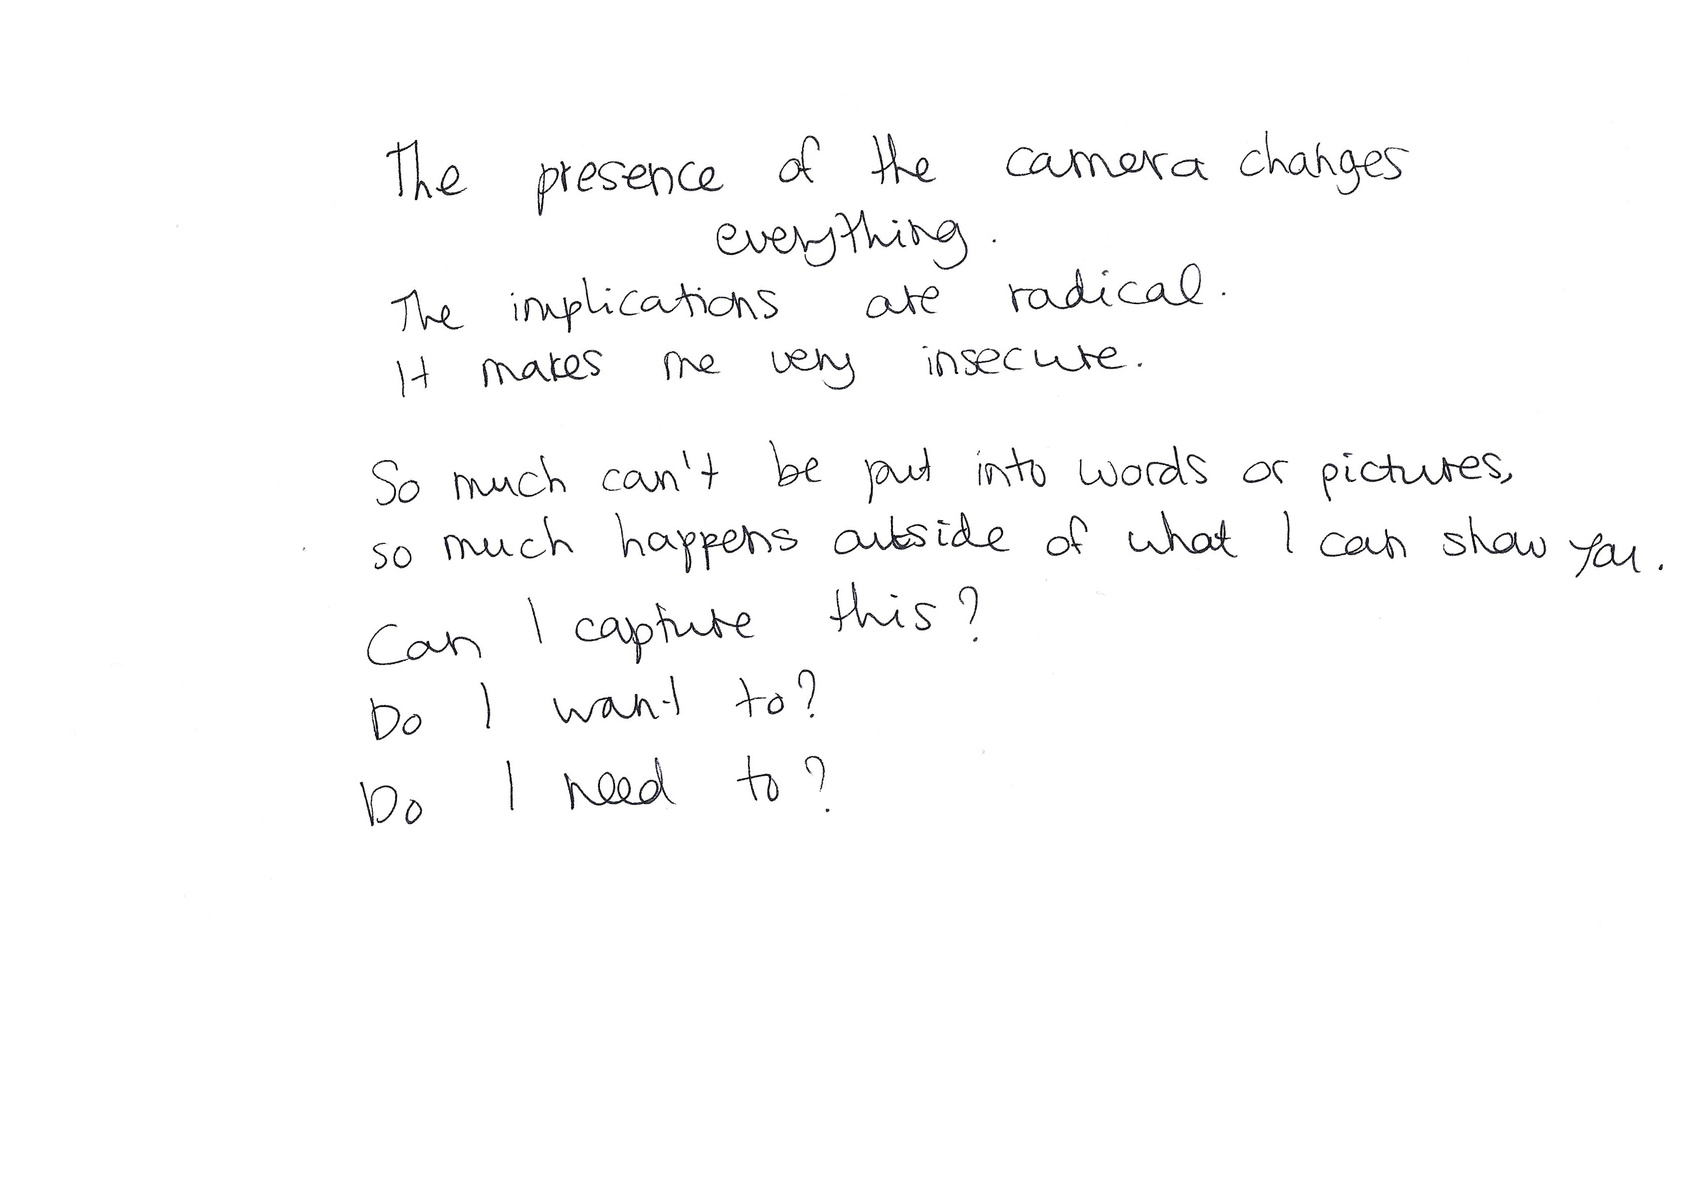 The presence of the camera changes
everything.
The implications are radical.
It makes me very insecure.
So much can't be put into words or pictures,
so much happens outside of what I can show you.
Can I capture this?
Do I want to?
Do I need to?